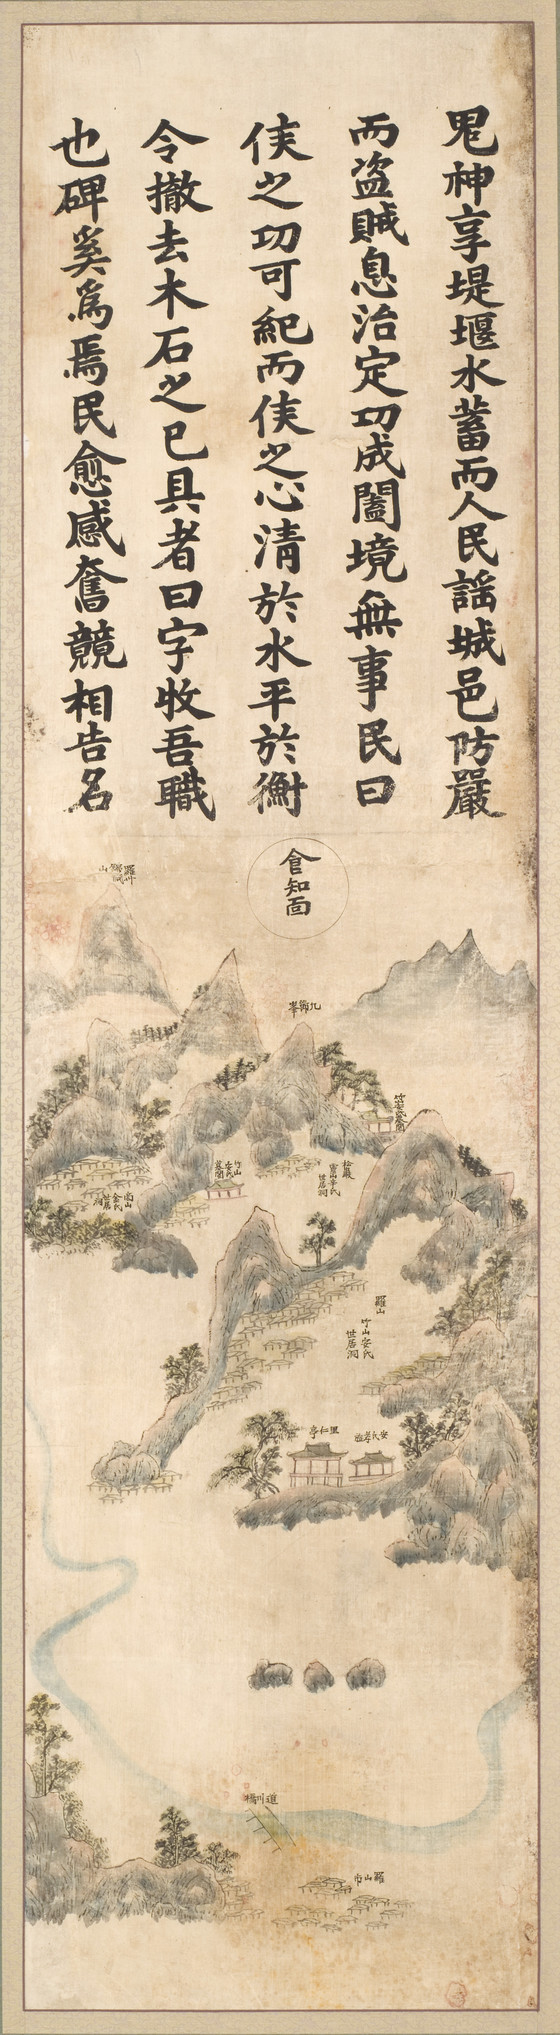 鬼神享堤堰水蓄而人民謡城邑防嚴
而盗賊息治定功成闔境無事民曰
侯之功可紀而侯之心清於水平於衡
令撤去木石之已具者曰字牧吾職
也碑奚爲焉民愈感奮競相告名
食知面
九節峯
竹山安氏墓閣
松巖
靈山辛氏
世居洞
南山
金氏
世居
洞
羅山
竹山安氏
世居洞
里仁亭
道川橋
羅山市